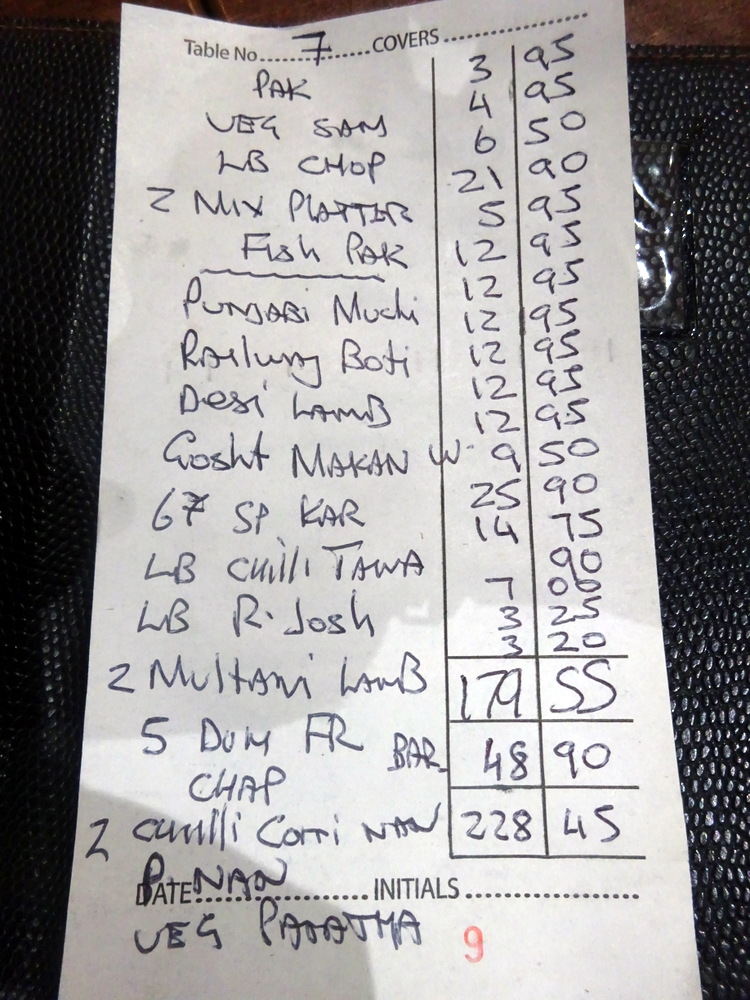 Table No 7 COVERS
PAK 3 95
VEG SAM 4 95
LB CHOP 6 50
2 MIX PLATTER 21 90
Fish PAK 5 95
PUNJABI Muchi 12 95
Railway Boti 12 95
Desi LAMB 12 95
Gosht MAKAN W 12 95
67 SP KAR 12 95
LB CHILLI TAWA 12 95
LB R. Josh 9 50
2 Multani LAMB 25 90
5 Dum FR 14 75
CHAP 90
2 Chilli Corri NAN 7 00
P. NAN 3 25
VEG PARATHA 3 20
179 55
BAR 48 90
228 45
DATE INITIALS
9